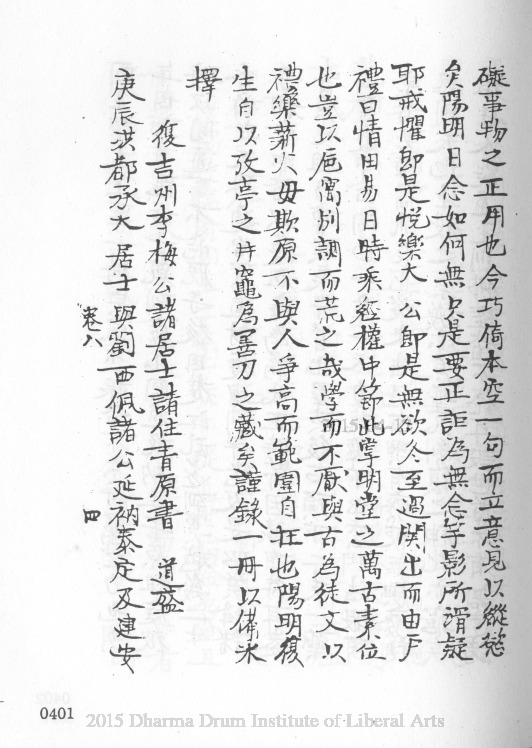 礙事物之正用也今巧倚本空一句而立意見以縱慾
矣陽明曰念如何無只是要正詎為無念等影所謂疑
耶戒懼即是悅樂大公即是無欲冬至過関出而由戶
禮曰情田易曰時乘經權中節此掌明堂之萬古素位
也豈以巵寓別調而荒之哉學而不厭與古為徒文以
禮樂薪火毋欺原不與人爭高而範圍自在也陽明復
生自以孜亭之井竈為善刀之藏矣謹錄一冊以俻氷
擇
復吉州李梅公諸居士請住青原書 道盛
庚辰洪都承大居士與劉西佩諸公延衲泰定及建安
卷八 四
0401
2015 Dharma Drum Institute of Liberal Arts